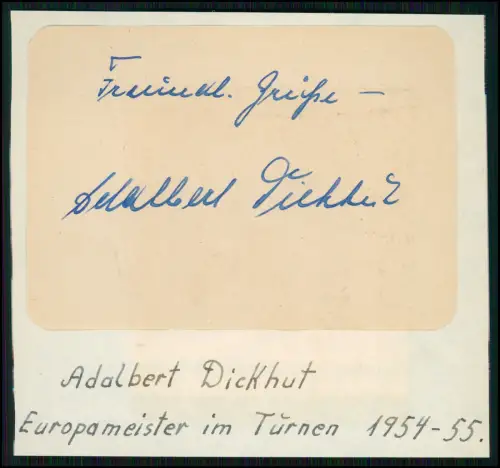 Freundl. Grüße –
Adalbert Dickhut
Adalbert Dickhut
Europameister im Turnen 1954-55.